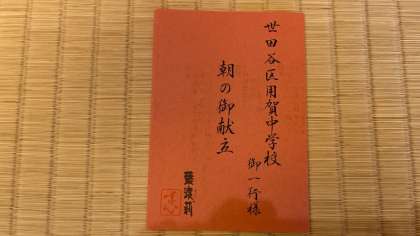 世田谷区用賀中学校
御一行様
朝の御献立